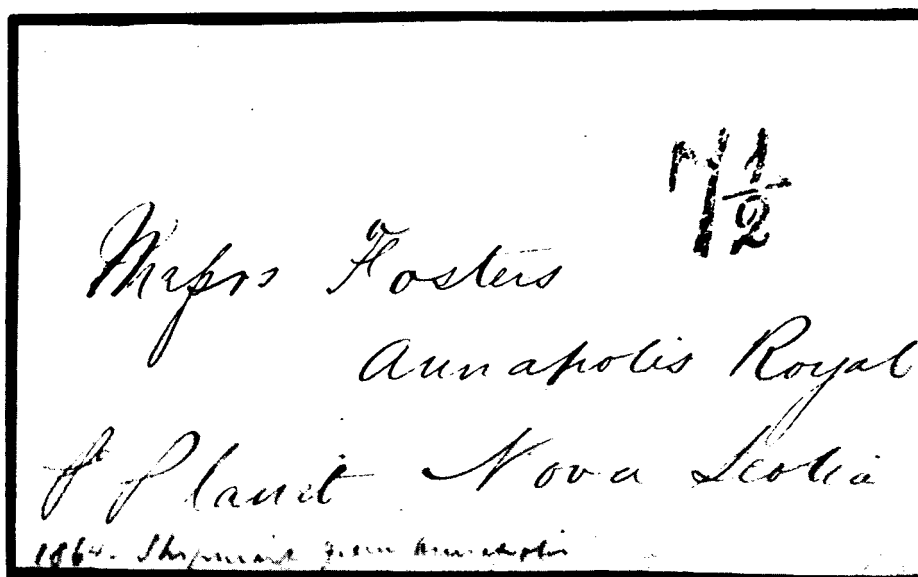 7 1/2
Messrs Fosters
Annapolis Royal
Pr Planet Nova Scotia
1864. Shipment from Annapolis